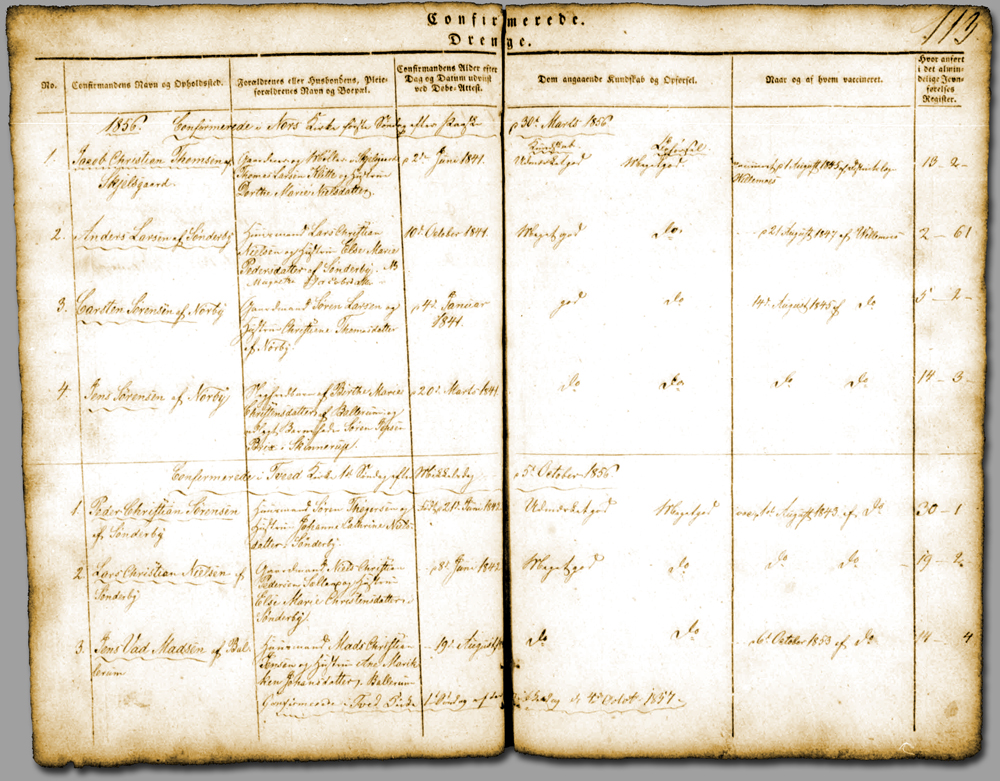 Confirmerede.
Drenge.
113
No.
Confirmandens Navn og Opholdssted.
Forældrenes eller Husbondens, Pleie-
forældrenes Navn og Boepæl.
Confirmandens Alder efter
Dag og Datum udviist
ved Døbe-Attest.
Dom angaaende Kundskab og Opførsel.
Naar og af hvem vaccineret.
Hvor anført
i det almin-
delige Jevn-
førelses
Register.
1856. Confirmerede i Nors Kirke første Søndag efter Paaske d 30te Marts 1856
Kundskab Opførsel
1. Jacob Christian Thomsen af
Skjelsgaard.
Thomas Larsen Klitte og Hustru
Dorthe Marie Nielsdatter
d 2den Juni 1841.
Udmærket god
Meget god
Willemoes
13 - 2 -
2. Anders Larsen af Sønderby
Huusmand Lars Christian
Nielsen og Hustru Else Marie
Pedersdatter af Sønderby.
10de October 1841.
Meget god
Do
d 21 August 1847 af Willemoes
2 - 61
3. Carsten Sørensen af Nørby
Gaardmand Søren Larsen og
Hustru Christiane Thomasdatter
af Nørby.
d 4de Januar
1841.
god
Do
14de August 1845 af Do
5 - 2 -
4. Jens Sørensen af Nørby
Birthe Marie
Christensdatter af Ballerum og
Søren Jepsen
i Skinnerup.
d 20de Marts 1841
Do
Do
Do Do
14 - 3 -
Confirmerede i Tved Kirke 1ste Søndag efter Mikkelsdag d 5te October 1856
1. Peder Christian Sørensen
af Sønderby
Huusmand Søren Thøgersen og
Hustru Johanne Cathrine Niels-
datter i Sønderby.
21de Juni 1842
Udmærket god
Meget god
August 1843 af Do
30 - 1
2. Lars Christian Nielsen af
Sønderby
Gaardmand Niels Christian
Pedersen og Hustru
Else Marie Christensdatter i
Sønderby.
d 8de Juni 1842
Meget god
Do
Do Do
19 - 2
3. Jens Vad Madsen af Bal-
lerum
Huusmand Mads Christian
Jensen og Hustru Ane Marik-
ken Johansdatter i Ballerum
19de August
Do
Do
d 6te October 1853 af Do
14 - 4
Confirmerede i Tved Kirke 1ste Søndag efter Mikkelsdag d. 4de Octob. 1857.